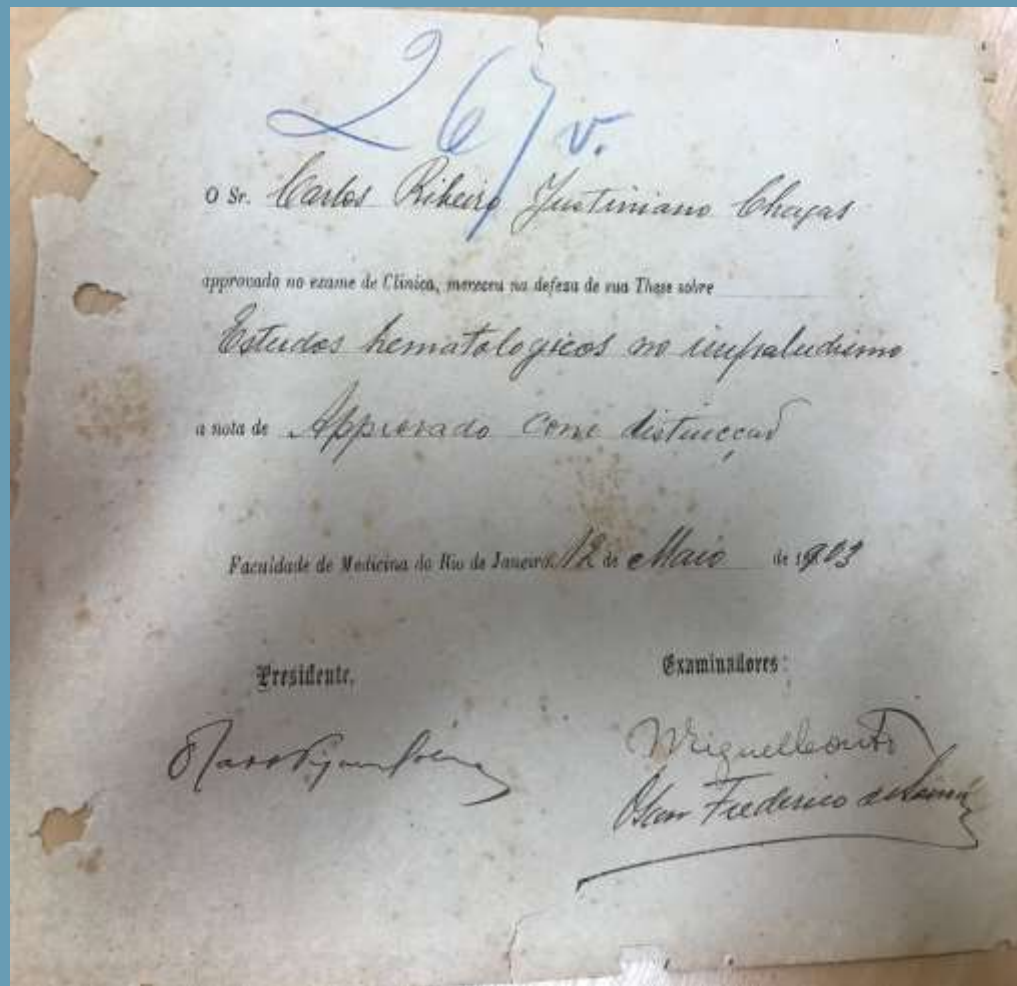 267 v.
O Sr. Carlos Ribeiro Justiniano Chagas
approvado no exame de Clinica, mereceu na defesa de sua These sobre
Estudos hematologicos no impaludismo
a nota de Approvado com distincção
Faculdade de Medicina do Rio de Janeiro, 12 de Maio de 1903
Presidente,
Examinadores:
Miguel Couto
Frederico de